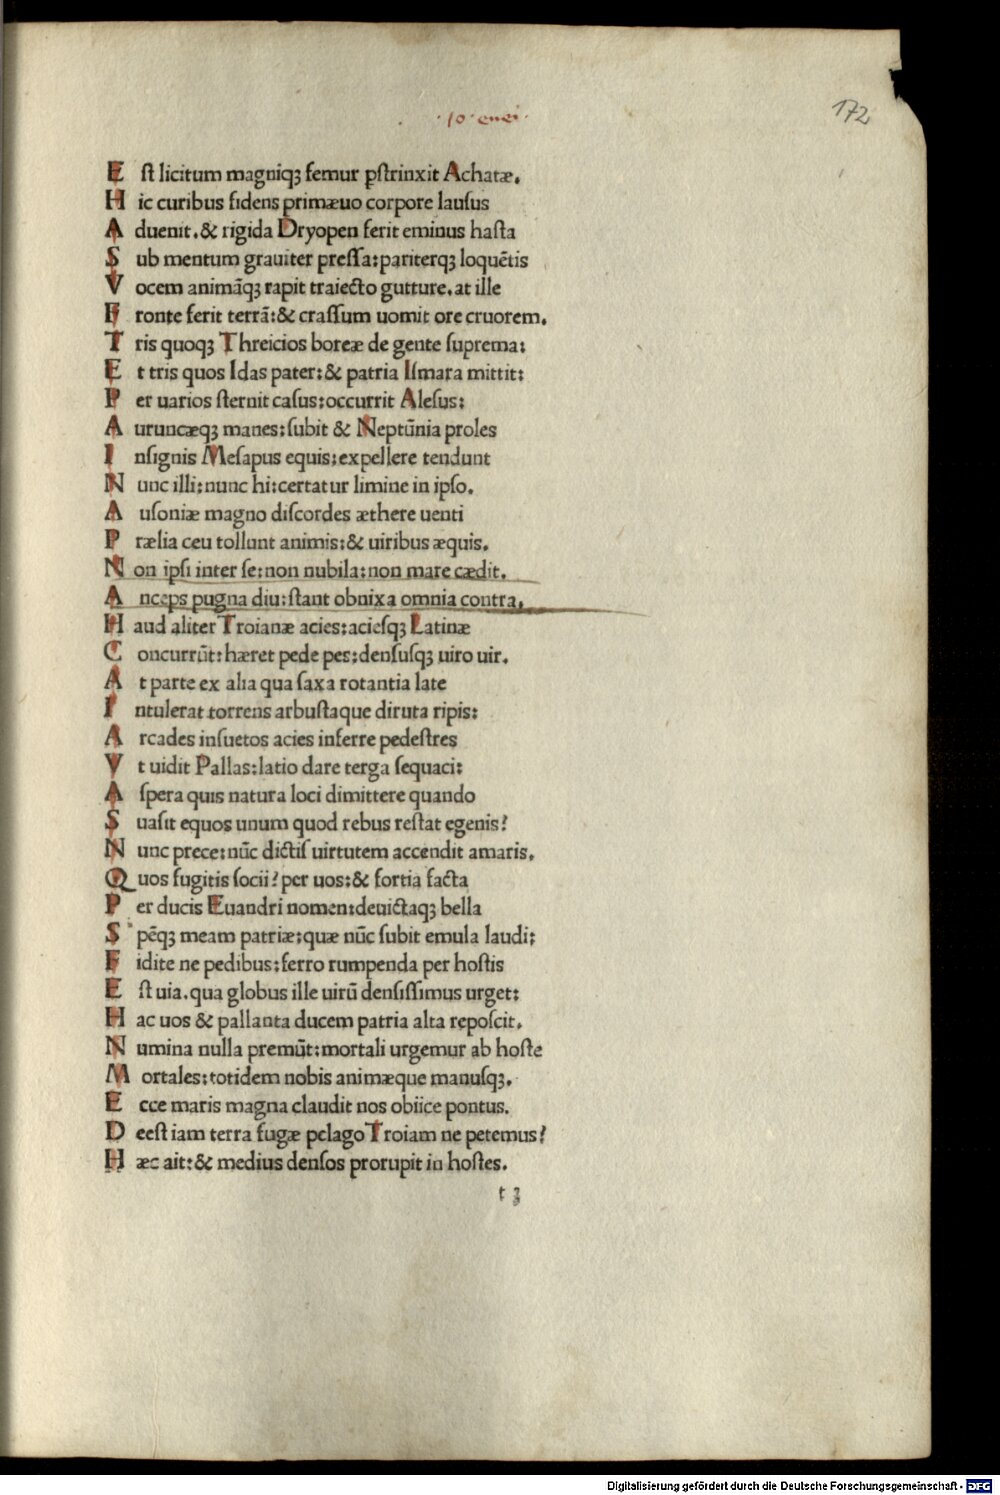 ·10·enei·
172
E ſt licitum magniqꝫ femur pſtrinxit Achatæ.
H ic curibus fidens primæuo corpore lauſus
A duenit.& rigida Dryopen ferit eminus haſta
S ub mentum grauiter preſſa:pariterqꝫ loquētis
V ocem animāqꝫ rapit traiecto gutture.at ille
F ronte ferit terrā:& craſſum uomit ore cruorem.
T ris quoqꝫ Threicios boreæ de gente ſuprema:
E t tris quos Idas pater:& patria Iſmara mittit:
P er uarios ſternit caſus:occurrit Aleſus:
A uruncæqꝫ manes:ſubit & Neptūnia proles
I nſignis Meſapus equis:expellere tendunt
N unc illi:nunc hi:certatur limine in ipſo.
A uſoniæ magno diſcordes æthere uenti
P rælia ceu tollunt animis:& uiribus æquis.
N on ipſi inter ſe:non nubila:non mare cædit.
A nceps pugna diu:ſtant obnixa omnia contra.
H aud aliter Troianæ acies:acieſqꝫ Latinæ
C oncurrūt:hæret pede pes:denſuſqꝫ uiro uir.
A t parte ex alia qua ſaxa rotantia late
I ntulerat torrens arbuſtaque diruta ripis:
A rcades inſuetos acies inferre pedeſtres
V t uidit Pallas:latio dare terga ſequaci:
A ſpera quis natura loci dimittere quando
S uaſit equos unum quod rebus reſtat egenis?
N unc prece:nūc dictiſ uirtutem accendit amaris.
Q uos fugitis ſocii?per uos:& fortia facta
P er ducis Euandri nomen:deuictaqꝫ bella
S pēqꝫ meam patriæ:quæ nūc ſubit emula laudi:
F idite ne pedibus:ferro rumpenda per hoſtis
E ſt uia.qua globus ille uirū denſiſſimus urget:
H ac uos & pallanta ducem patria alta repoſcit.
N umina nulla premūt:mortali urgemur ab hoſte
M ortales:totidem nobis animæque manuſqꝫ.
E cce maris magna claudit nos obiice pontus.
D eeſt iam terra fugæ pelago Troiam ne petemus?
H æc ait:& medius denſos prorupit in hoſtes.
t ꝫ
Digitalisierung gefördert durch die Deutsche Forschungsgemeinschaft - DFG